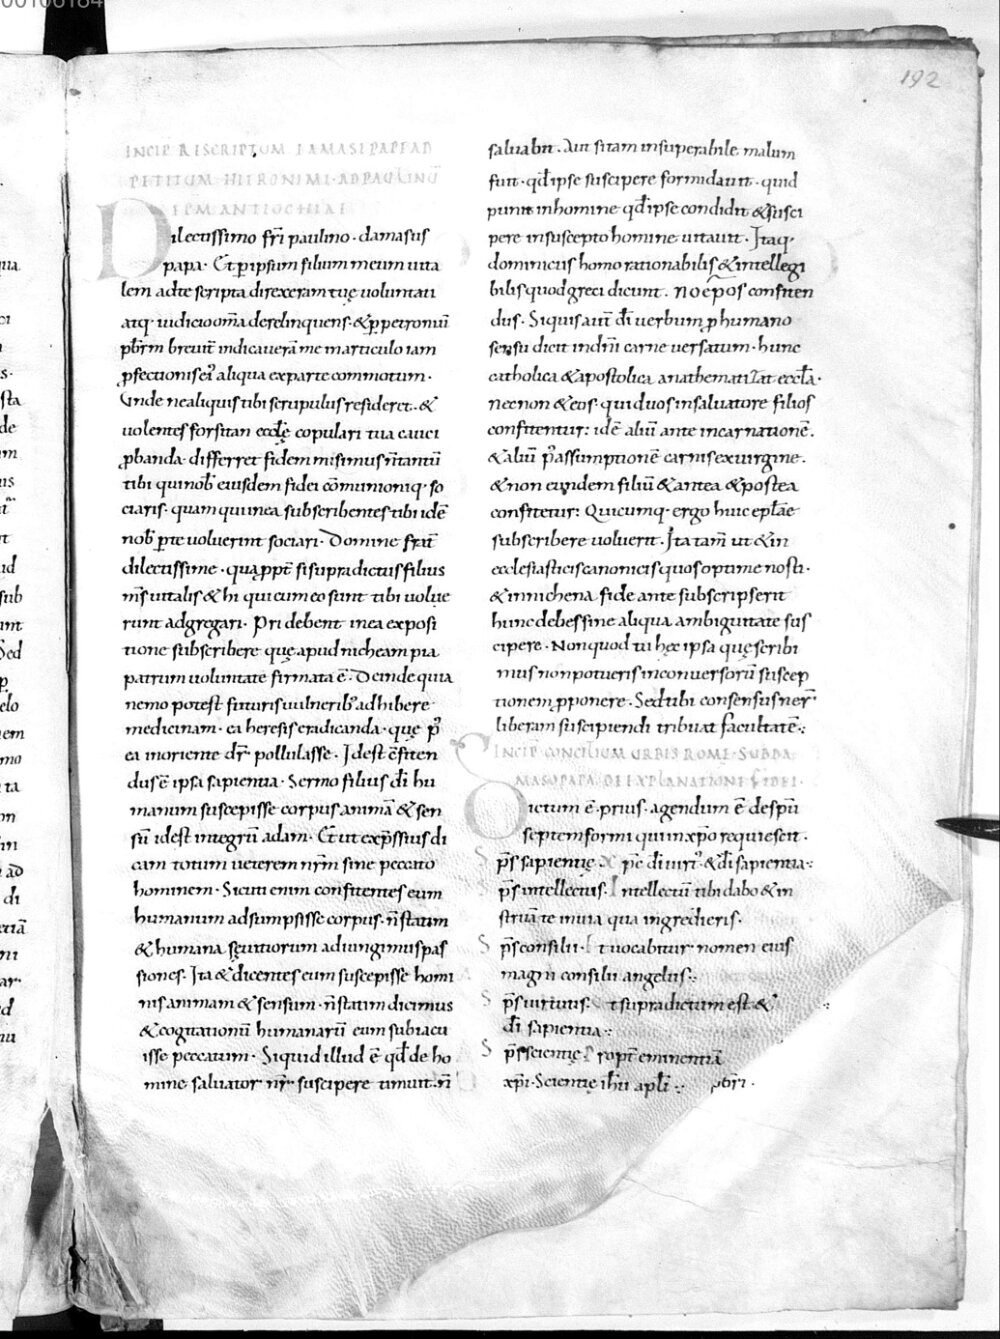 192
INCIP RESCRIPTUM DAMASI PAPAE AD
PETITUM HIERONIMI · AD PAULINŪ
EPM ANTIOCHIAE
Dilectissimo fr̄i paulino · damasus
papa · Et p̱ ipsum filium meum uita
lem ad te scripta direxeram tuę uoluntati
atq · iudicio om̄a derelinquens · & p̱ petroniū
pb̄rm breuit̄ indicauerā me in articulo iam
ꝓfectionis ei' aliqua ex parte commotum ·
Unde ne aliquis tibi scrupulus resideret · &
uolentes forsitan eccłę copulari tua cauti
ꝓbanda differret fidem misimus n̄ tantū
tibi qui nob̄ eiusdem fidei cōmunioniq · so
ciaris · quam qui in ea subscribentes tibi idē
nob̄ p̱ te uoluerint sociari · Domine frat̄
dilectissime · quap̱pt̄ si supradictus filius
m̄s uitalis & hi qui cum eo sunt tibi uolue
runt adgregari · Pri debent in ea exposi
tione subscribere quę apud nicheam pia
patrum uoluntate firmata ē · Deinde quia
nemo potest futuris uulnerib' adhibere
medicinam · ea heresis eradicanda · quę p̄
ea moriente dr̄ pollulasse · Idest c̄fiten
dus ē ipsa sapientia · Sermo filius dī hu
manum suscepisse corpus animā & sen
sū idest integrū adam · Et ut exp̄ssius di
cam totum ueterem nr̄m sine peccato
hominem · Sicuti enim confitentes eum
humanum adsumpsisse corpus · n̄ statim
& humana ei uitiorum adiungimus pas
siones · Ita & dicentes eum suscepisse homi
nis animam & sensum · n̄ statim dicimus
& cogitationū humanarū eum subiacu
isse peccatum · Siquid illud ē qd̄ de ho
mine saluator nr̄ suscipere timuit · n̄
saluabit · Aut si tam insuperabile malum
fuit · qd̄ ipse suscipere formidauit · quid
punit in homine qd̄ ipse condidit & susci
pere in suscepto homine uitauit · Itaq ·
dominicus homo rationabilis & intellegi
bilis quod greci dicunt · noēpos confiten
dus · Siquis aut̄ dī uerbum p̱ humano
sensu dicit in dn̄i carne uersatum · hunc
catholica & apostolica anathematizat eccłā ·
necnon & eos · qui duos in saluatore filios
confitentur : idē aliū ante incarnationē ·
& aliū p̄ assumptionē carnis ex uirgine ·
& non eundem filiū & antea & postea
confitetur : Quicumq · ergo huic ep̄lae
subscribere uoluerit · Ita tam̄ ut & in
ecclesiasticis canonicis quos optime nosti ·
& in nichena fide ante subscripserit
hunc debes sine aliqua ambiguitate sus
cipere · Non quod tu hęc ipsa quę scribi
mus non potueris in conuersorū suscep
tionem ꝓponere · Sed tibi consensus ner̄
liberam suscipiendi tribuat facultatē :·
INCIP CONCILIUM URBIS ROMĘ · SUB DA
MASO PAPA · DE EXPLANATIONE FIDEI ·
Dictum ē · prius · agendum ē de sp̄u
septemformi qui in xp̄o requiescit ·
S p̄s sapientię · X p̄e dī uirt' & dī sapientia :·
S p̄s intellectus · Intellectū tibi dabo & in
struā te in uia qua ingredieris ·
S p̄s consilii · Et uocabitur nomen eius
magni consilii angelus :·
S p̄s uirtutis · Ut supradictum est & :·
dī sapientia :·
S p̄s scientię · Propt̄ eminentiā
xp̄i · Scientię ih̄u apłi :·